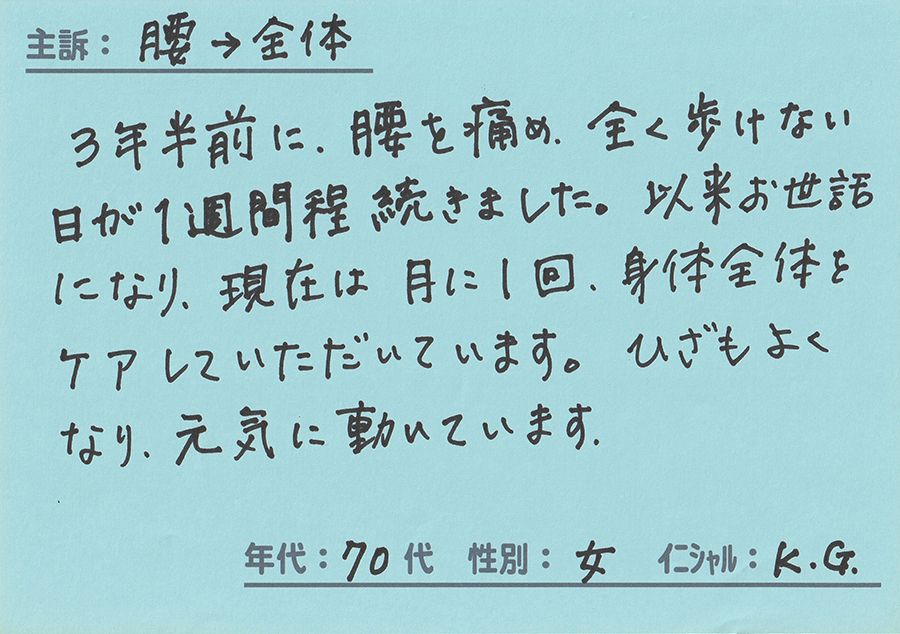 主訴： 腰→全体
3年半前に、腰を痛め、全く歩けない
日が1週間程続きました。以来お世話
になり、現在は月に1回、身体全体を
ケアしていただいています。ひざもよく
なり、元気に動いています。
年代：70代 性別：女 ｲﾆｼｬﾙ：K.G.